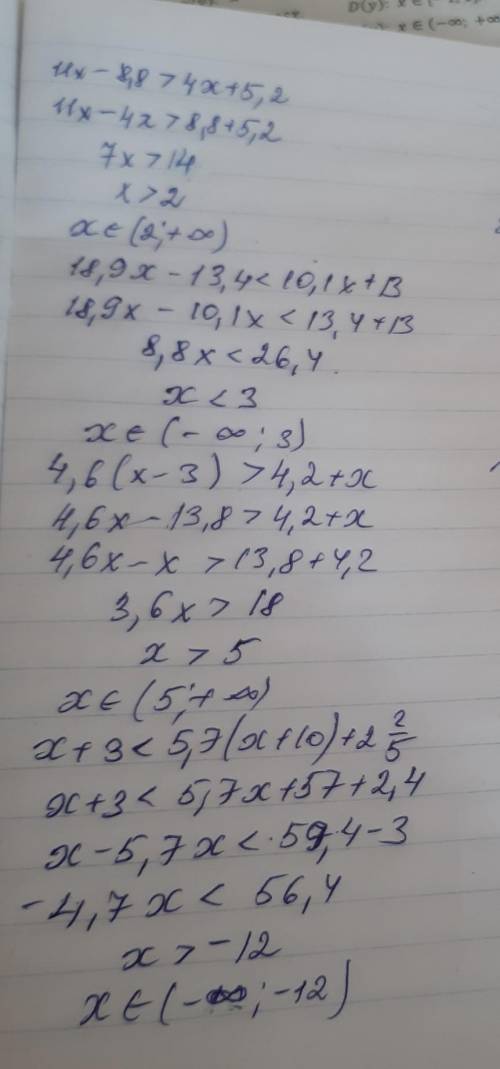 D(y): x ∈ (-
x ∈ (-∞; +∞
11x - 8,8 > 4x + 5,2
11x - 4x > 8,8 + 5,2
7x > 14
x > 2
x ∈ (2; +∞)
18,9x - 13,4 < 10,1x + 13
18,9x - 10,1x < 13,4 + 13
8,8x < 26,4
x < 3
x ∈ (-∞; 3)
4,6(x - 3) > 4,2 + x
4,6x - 13,8 > 4,2 + x
4,6x - x > 13,8 + 4,2
3,6x > 18
x > 5
x ∈ (5; +∞)
x + 3 < 5,7(x + 10) + 2 2/5
x + 3 < 5,7x + 57 + 2,4
x - 5,7x < 59,4 - 3
-4,7x < 56,4
x > -12
x ∈ (-∞; -12)